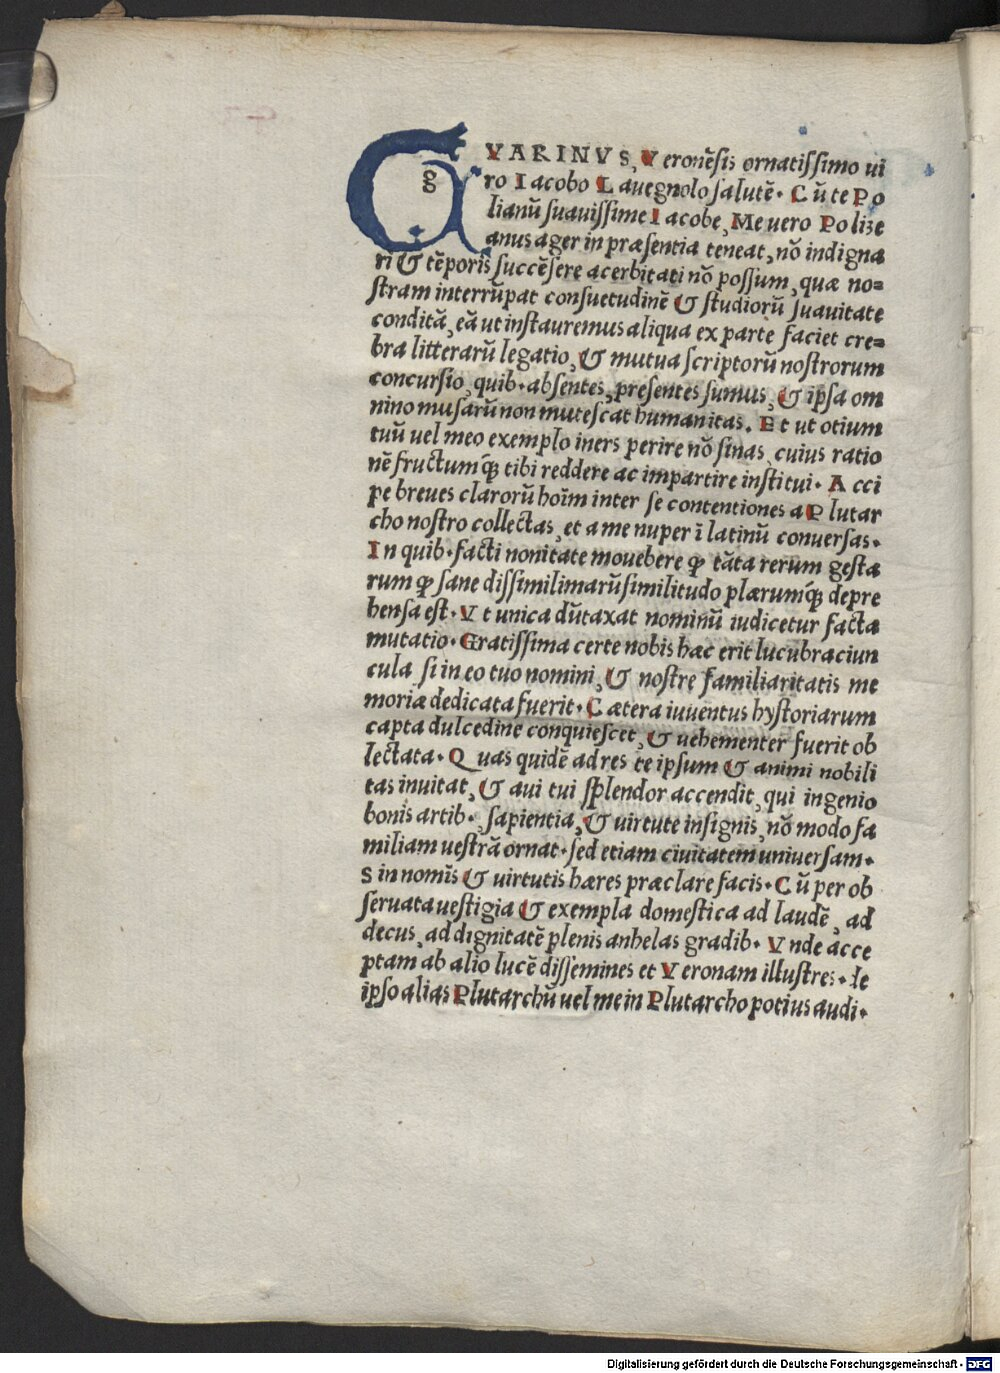 GVARINVS, Veronēsis ornatissimo ui
ro Iacobo Lauegnolo salutē. Cū te Po
lianū suauissime Iacobe, Me uero Polize
anus ager in præsentia teneat, nō indigna
ri & tēporis succēsere acerbitati nō possum, quæ no=
stram interrūpat consuetudinē & studiorū suauitate
conditā, eā ut instauremus aliqua ex parte faciet cre=
bra litterarū legatio, & mutua scriptorū nostrorum
concursio, quib. absentes, presentes sumus, & ipsa om
nino musarū non mutescat humanitas. Et ut otium
tuū uel meo exemplo iners perire nō sinas, cuius ratio
nē fructumq; tibi reddere ac impartire institui. Acci
pe breues clarorū hoīm inter se contentiones a Plutar
cho nostro collectas, et a me nuper ī latinū conuersas.
In quib. facti nonitate mouebere ꝙ tāta rerum gesta
rum ꝙ sane dissimilimarū similitudo plærumq; depre
hensa est. Vt unica dūtaxat nominū iudicetur facta
mutatio. Gratissima certe nobis hæc erit lucubraciun
cula si in eo tuo nomini, & nostre familiaritatis me
moriæ dedicata fuerit. Cætera iuuentus hystoriarum
capta dulcedine conquiescet, & uehementer fuerit ob
lectata. Quas quidē ad res te ipsum & animi nobili
tas inuitat, & aui tui splendor accendit, qui ingenio
bonis artib. sapientia, & uirtute insignis, nō modo fa
miliam uestrā ornat. sed etiam ciuitatem uniuersam.
Sin nomīs & uirtutis hæres præclare facis. Cū per ob
seruata uestigia & exempla domestica ad laudē, ad
decus, ad dignitatē plenis anhelas gradib. Vnde acce
ptam ab alio lucē dissemines et Veronam illustres. Ie
ipso alias Plutarchū uel me in Plutarcho potius audi.
Digitalisierung gefördert durch die Deutsche Forschungsgemeinschaft - DFG